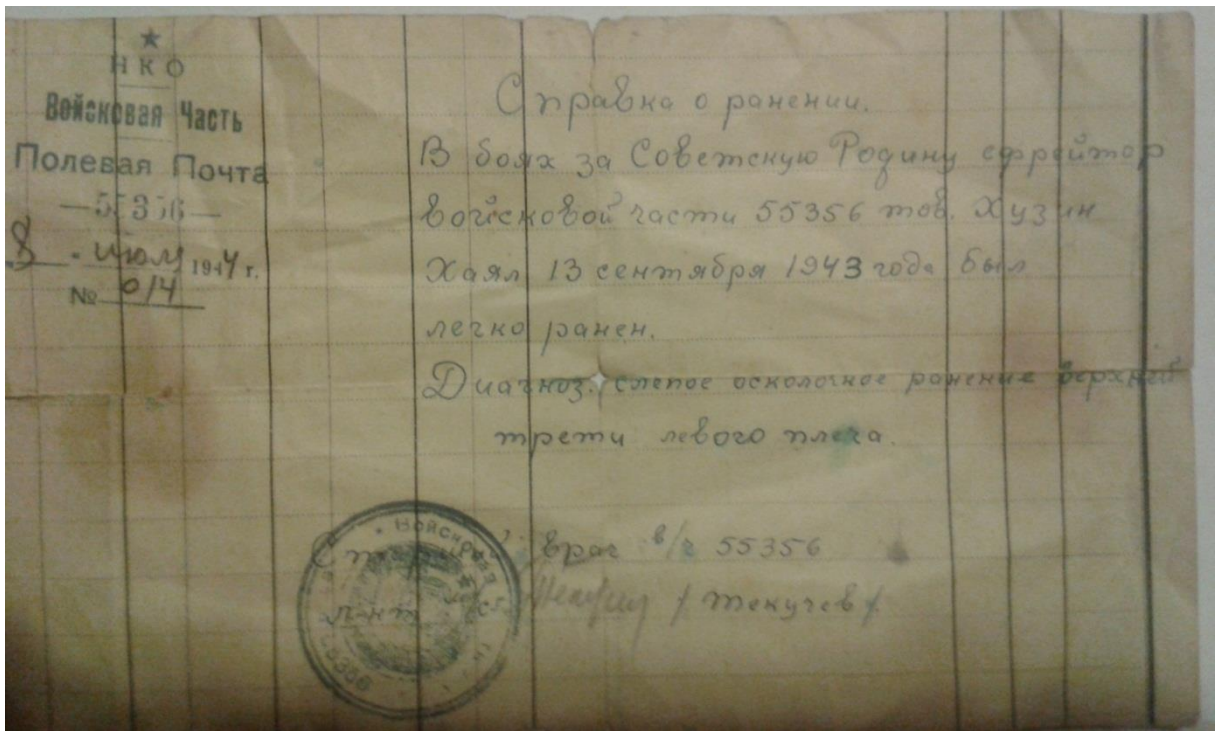 НКО
Войсковая Часть
Полевая Почта
—55356—
8 - июля 1944 г.
№ 014
Справка о ранении.
В боях за Советскую Родину ефрейтор
войсковой части 55356 тов. Хузин
Хаял 13 сентября 1943 года был
легко ранен.
Диагноз: слепое осколочное ранение верхней
трети левого плеча.
врач в/ч 55356
/Текучев/
Войсковая